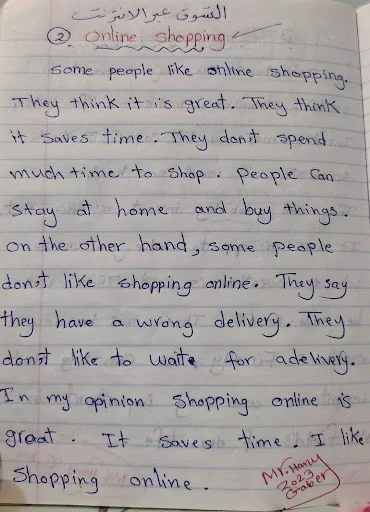 التسوق عبر الانترنت
② online shopping
Some people like online shopping.
They think it is great. They think
it saves time. They don't spend
much time to shop. people can
stay at home and buy things.
on the other hand, some people
don't like shopping online. They say
they have a wrong delivery. They
don't like to waite for adelivery.
In my opinion shopping online is
graat. It saves time I like
shopping online.
Mr. Hany
2023
Gaber